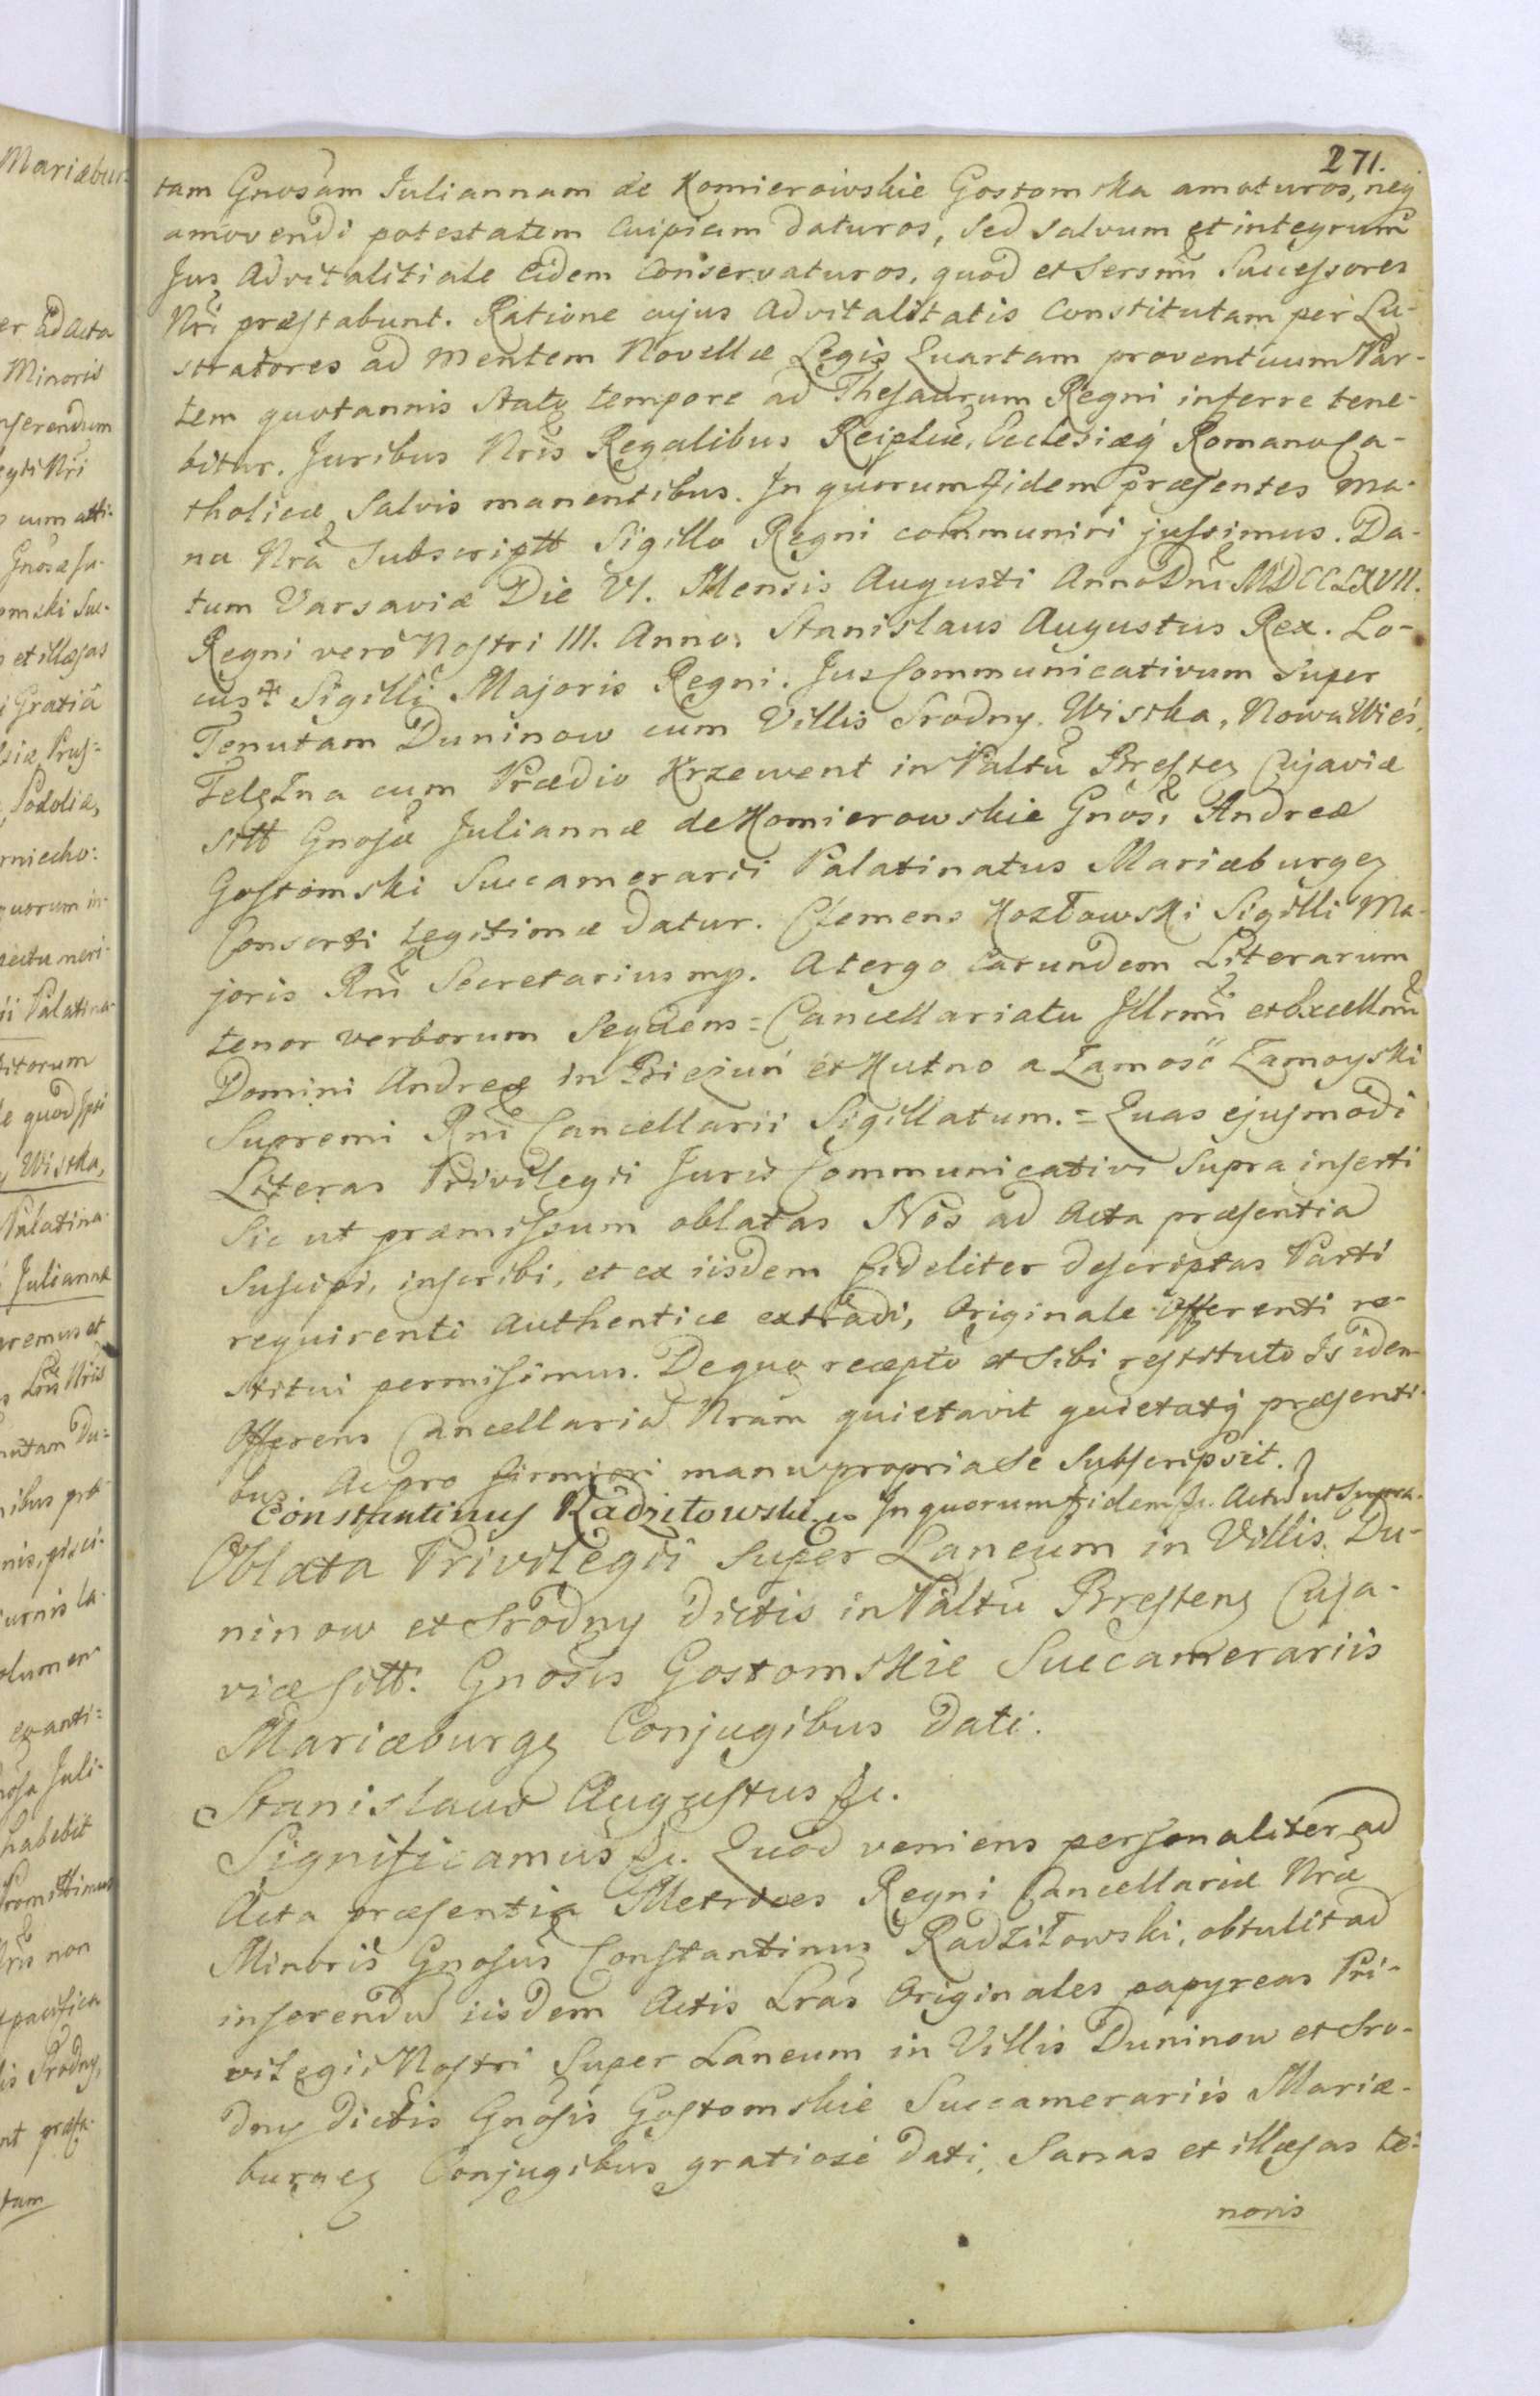 271.
tam Gnosam Juliannam de Komierowskie Gostomska amoturos, neq
amovendi potestatem cuipiam daturos, sed salvum et integrum
Jus Advitalitiale eidem conservaturos, quod et Sersmi Successores
Nri præstabunt. Ratione cujus Advitalitatis Constitutam per Lu-
stratores ad mentem Novellæ Legis Quartam proventuum Par-
tem quotannis stato tempore ad Thesaurum Regni inferre tene-
bitur. Juribus Nris Regalibus Reiplicæ, Ecclesiæq Romano Ca-
tholicæ salvis manentibus. In quorum fidem præsentes ma-
nu Nra Subscriptt Sigillo Regni communiri jussimus. Da-
tum Varsaviæ Die VI. Mensis Augusti Anno Dni MDCCLXVII.
Regni verò Nostri III. Anno. Stanislaus Augustus Rex. Lo-
cus Sigilli Majoris Regni. Jus Communicativum super
Tenutam Duninow cum Villis Srodny. Wistka, Nowa Wieś,
Telezna cum Prædio Krzewent in Paltu Bresten Cujaviæ
sitt Gnosæ Juliannæ de Komierowskie Gnosi Andreæ
Gostomski Succamerarii Palatinatus Mariæburgen
Consorti legitimæ datur. Clemens Kozłowski Sigilli Ma-
joris Rni Secretarius mp. A tergo earundem Literarum
tenor verborum sequens = Cancellariatu Illrmi et Excellmi
Domini Andreæ in Bieżuń et Kutno a Zamość Zamoyski
Supremi Rni Cancellarii Sigillatum. = Quas ejusmodi
Literas Privilegii Juris Communicativi supra inserti
sic ut præmissum oblatas Nos ad Acta præsentia
suscipi, inscribi, et ex iisdem fideliter descriptas Parti
requirenti authentice extradi, Originale Offerenti re-
stitui permisimus. De quo recepto et sibi restituto Is idem
Offerens Cancellaria Nram quietavit quietatq præsenti-
bus. Ac pro firmiori manu propria se subscripsit.
Constantinus Radziłowski In quorum fidem &c. Actu ut supra.
Oblata Privilegii super Laneum in Villis Du-
ninow et Srodny dictis in Paltu Bresten Cuja-
viæ sitt. Gnosis Gostomskie Succamerariis
Mariæburg Conjugibus dati.
Stanislaus Augustus &c.
Significamus &c. Quod veniens personaliter ad
Acta præsentia Metrices Regni Cancellariæ Nræ
Minoris Gnosus Constantinus Radziłowski, obtulit ad
inserendu iisdem Actis Lras Originales papyreas Pri-
vilegii Nostri super Laneum in Villis Duninow et Sro-
dny dictis Gnosis Gostomskie Succamerariis Mariæ-
burgen Conjugibus gratiose dati, Sanas et illæsas te-
noris